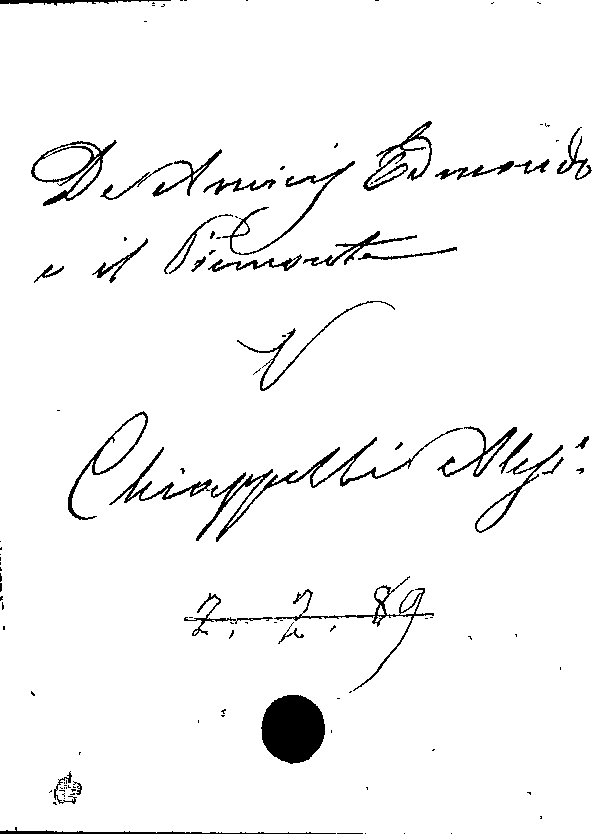 De Amicis Edmondo
e il Piemonte
V
Chiappelli Aless.
2. 2. 89